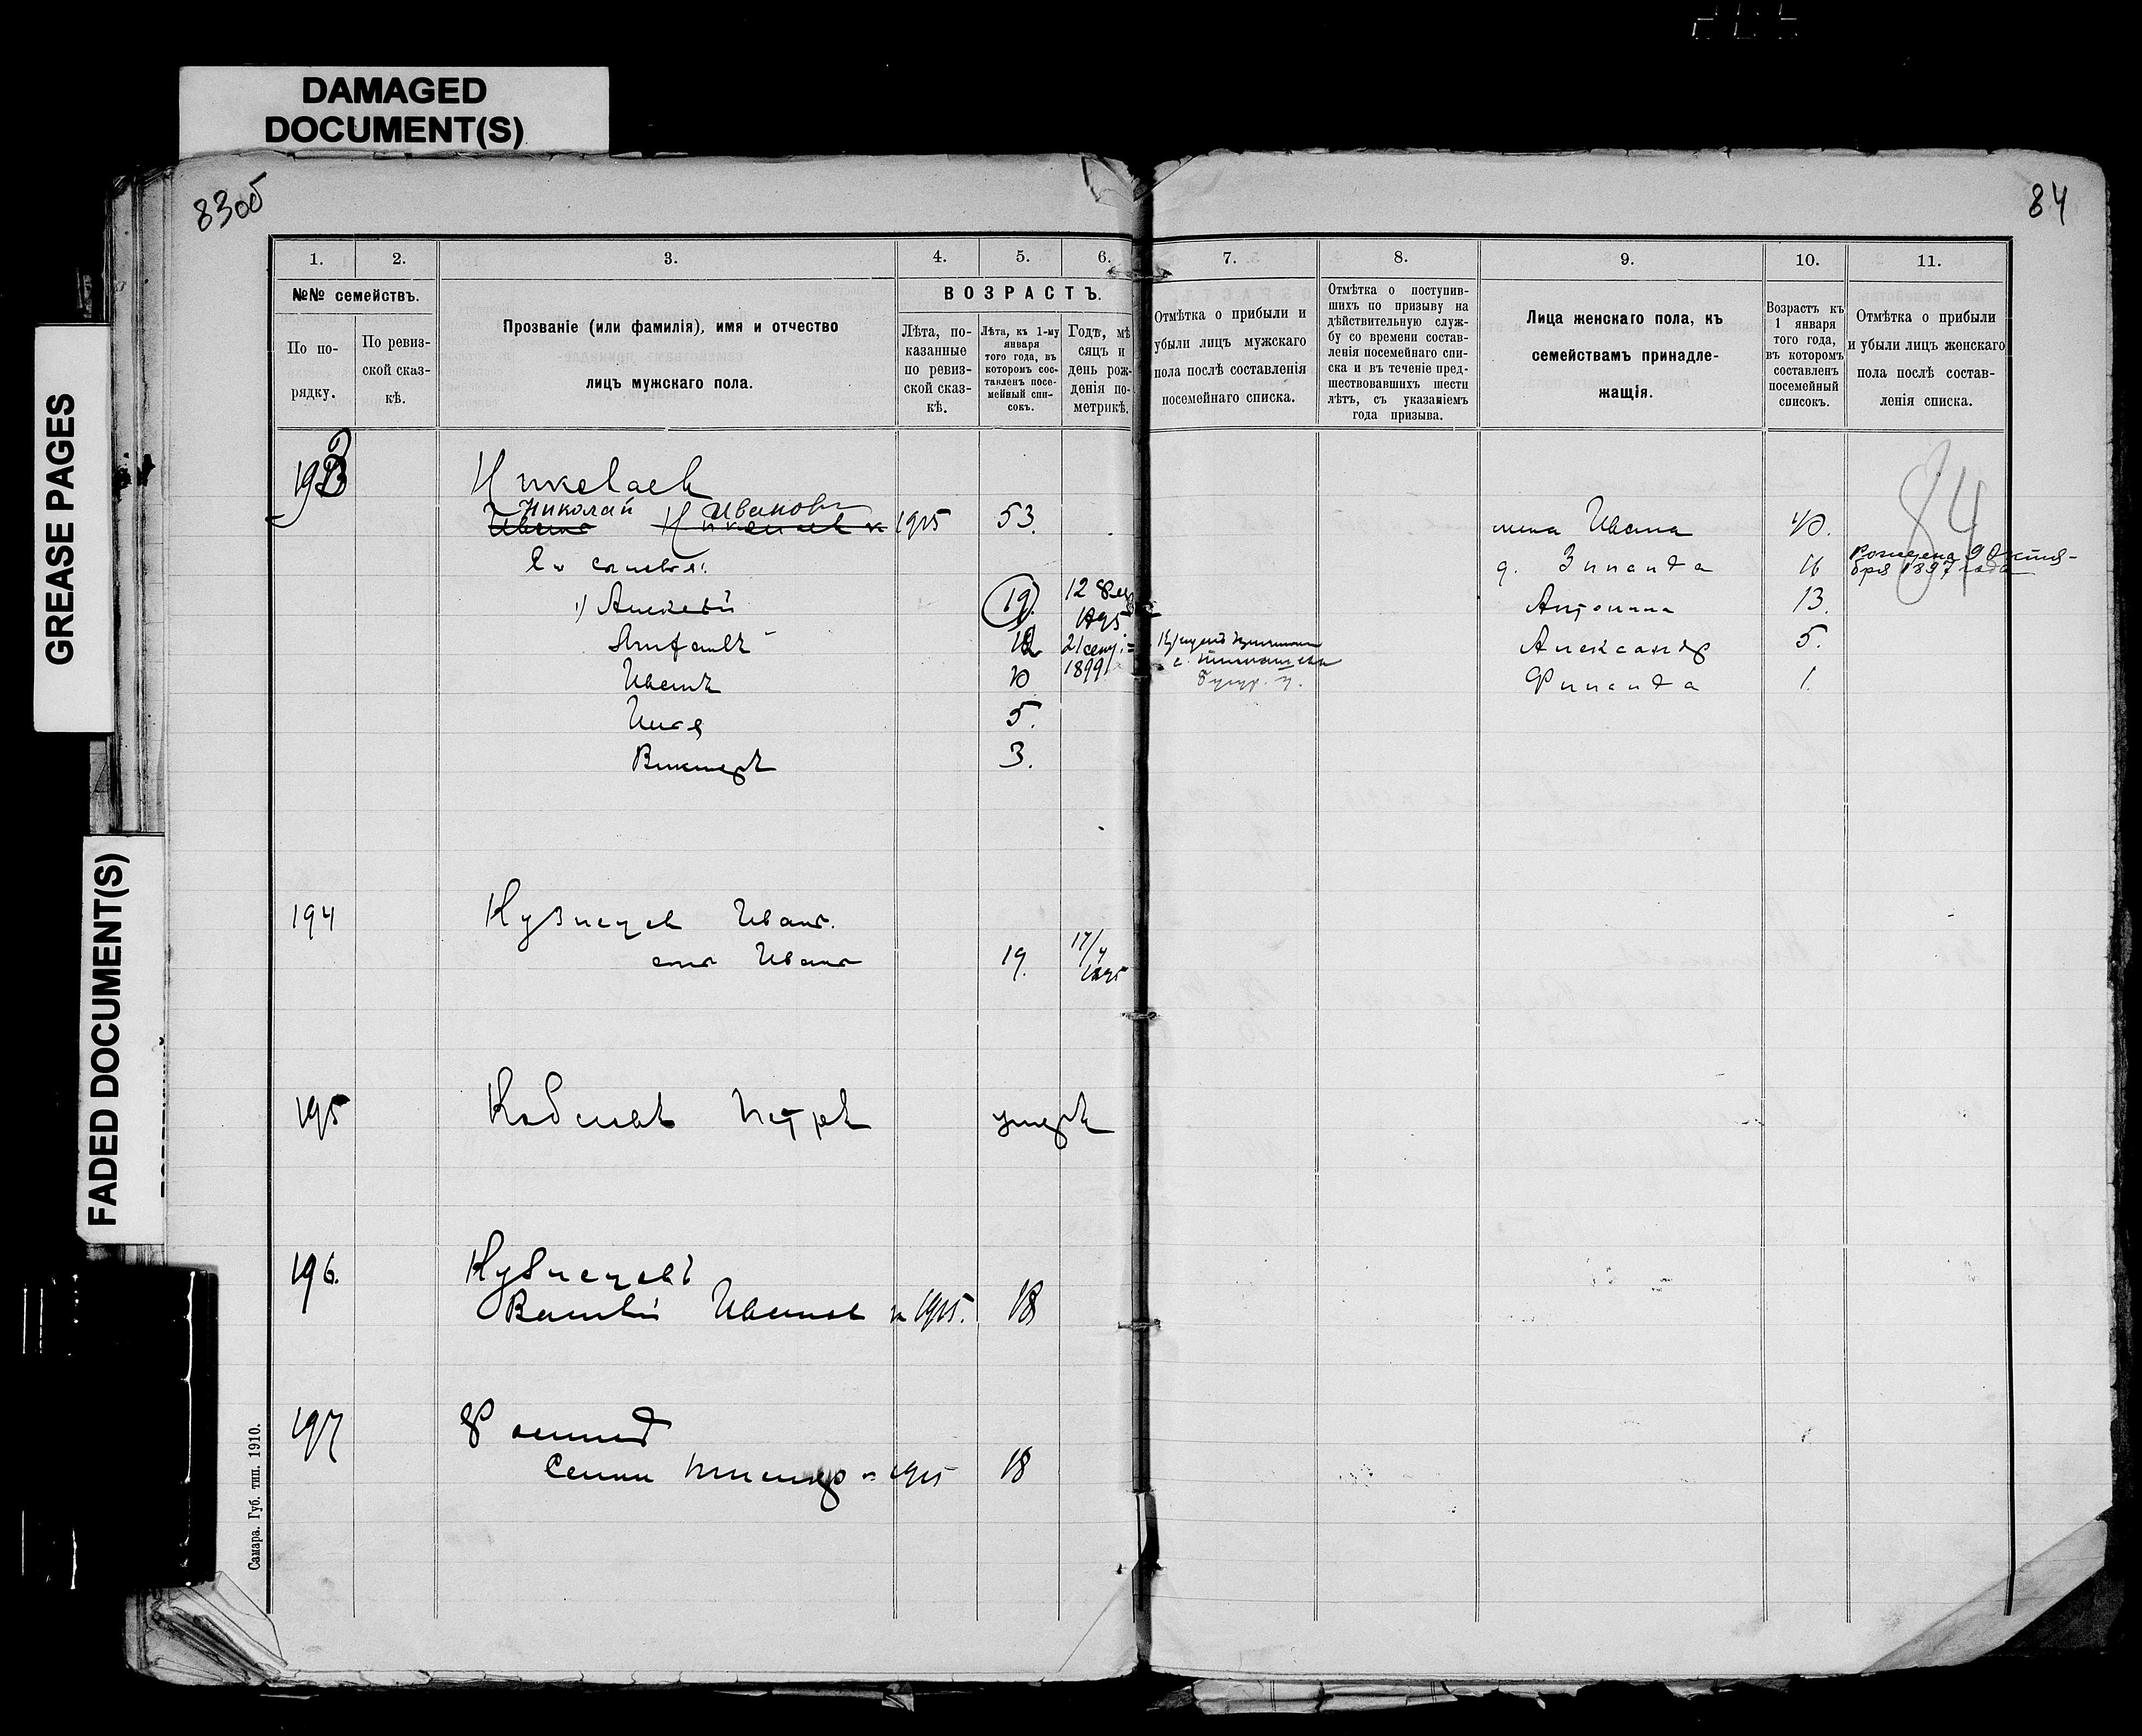 DAMAGED
DOCUMENT(S)
GREASE PAGES
FADED DOCUMENT(S)
83об
84
1.
2.
3.
4.
5.
6.
7.
8.
9.
10.
11.
№№ семействъ.
По по-
рядку.
По ревиз-
ской сказ-
кѣ.
Прозваніе (или фамилія), имя и отчество
лицъ мужскаго пола.
ВОЗРАСТЪ.
Лѣта, по-
казанные
по ревиз-
ской сказ-
кѣ.
Лѣта, къ 1-му
января
того года, въ
которомъ сос-
тавленъ посе-
мейный спи-
сокъ.
Годъ, мѣ
сяцъ и
день рож-
денія по-
метрикѣ.
Отмѣтка о прибыли и
убыли лицъ мужскаго
пола послѣ составленія
посемейнаго списка.
Отмѣтка о поступив-
шихъ по призыву на
дѣйствительную служ-
бу со времени состав-
ленія посемейнаго спи-
ска и въ теченіе пред-
шествовавшихъ шести
лѣтъ, съ указаніемъ
года призыва.
Лица женскаго пола, къ
семействамъ принадле-
жащія.
Возрастъ къ
1 января
того года,
въ которомъ
составленъ
посемейный
списокъ.
Отмѣтка о прибыли
и убыли лицъ женскаго
пола послѣ состав-
ленія списка.
84
193
Николай Ивановъ
1915 53.
40.
Его сыновья:
д. Зинаида 16 Рождена 9 Октя-
бря 1897 года
1) Алексѣй 19. 12 Фев
1895
Антонина 13.
21 сент.
1899
Александр 5.
Иванъ 10
1.
5.
Викторъ 3.
194 Кузнецов Иванъ.
сынъ Иванъ 19. 17/4
1895
195 Петръ умеръ
196. Кузнецовъ
Василій Иванов 1915. 18
197
1915 18
Самара. Губ. тип. 1910.